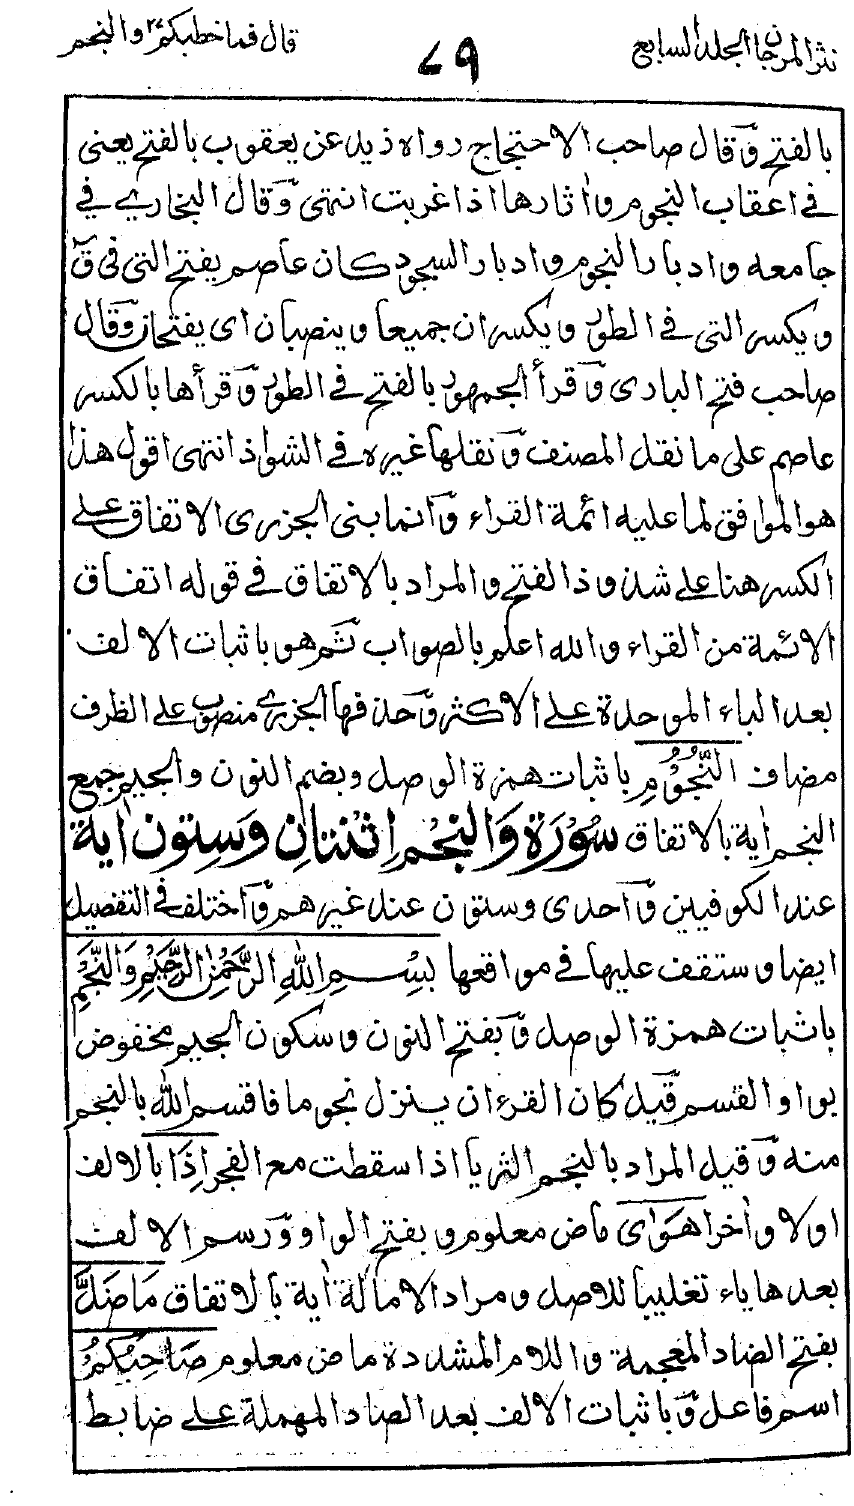 نثر المرجان الجلد السابع
٧٩
قال فما خطبكم ٢٧ والنجم
بالفتح وقال صاحب الاحتجاج رواه زيد عن يعقوب بالفتح يعنى
فى اعقاب النجوم واٰثارها اذا غربت انتهى وقال البخارى فى
جامعه وادبار النجوم وادبار السجود كان عاصم يفتح التى فى قٓ
ويكسر التى فى الطور ويكسران جميعا وينصبان اى يفتحان وقال
صاحب فتح البارى وقرأ الجمهور بالفتح فى الطور وقرأها بالكسر
عاصم على ما نقل المصنف ونقلها غيره فى الشواذ انتهى اقول هذا
هو الموافق لما عليه ائمة القراء وانما بنى الجزرى الاتفاق على
الكسر هنا على شذوذ الفتح والمراد بالاتفاق فى قوله اتفاق
الائمة من القراء والله اعلم بالصواب ثم هو باثبات الالف
بعد الباء الموحدة على الاكثر وحذفها الجزرى منصوب على الظرف
مضاف النُّجُوْمِ باثبات همزة الوصل وبضم النون والجيم جمع
النجم اٰية بالاتفاق سُوْرَة وَالنجْم اِثْنَتانِ وَسِتون اٰية
عند الكوفيين واحدى وستون عند غيرهم واختلف فى التفصيل
ايضا وستقف عليها فى مواقعها بِسْمِ اللهِ الرَّحْمٰنِ الرَّحِيْمِ وَالنَّجْمِ
باثبات همزة الوصل وبفتح النون وسكون الجيم مخفوض
بواو القسم قيل كان القرءان ينزل نجوما فاقسم الله بالنجم
منه وقيل المراد بالنجم الثريا اذا سقطت مع الفجر اِذَا بالالف
اولا واٰخرا هَوٰى ماض معلوم وبفتح الواو ورسم الالف
بعدها ياء تغليبا للاصل ومراد الامالة اٰية بالاتفاق مَا ضَلَّ
بفتح الضاد المعجمة واللام المشددة ماض معلوم صَاحِبُكُمْ
اسم فاعل وباثبات الالف بعد الصاد المهملة على ضابط